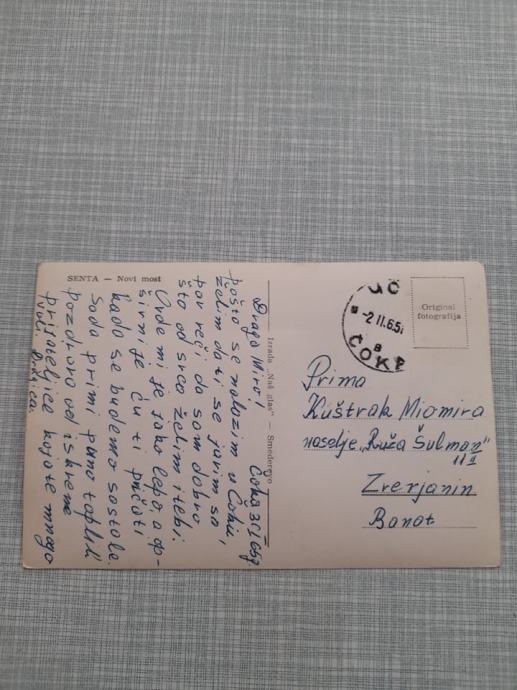 SENTA — Novi most
Izrada „Naš glas" — Smederevo
Čoka
Draga Miro!
pošto se nalazim u Čoki,
želim da ti se javim sa
par reči, da sam dobro
što od srca želim i tebi.
Ovde mi je jako lepo, a op-
širnije ću ti pričati
kada se budemo sastale.
Sada primi puno toplih
pozdrava od iskrene
prijateljice koja te mnogo
voli.
-2.II.65
ČOKA
Original
fotografija
Prima
Kuštrak Miomira
naselje „Ruža Šulman"
Zrenjanin
Banat